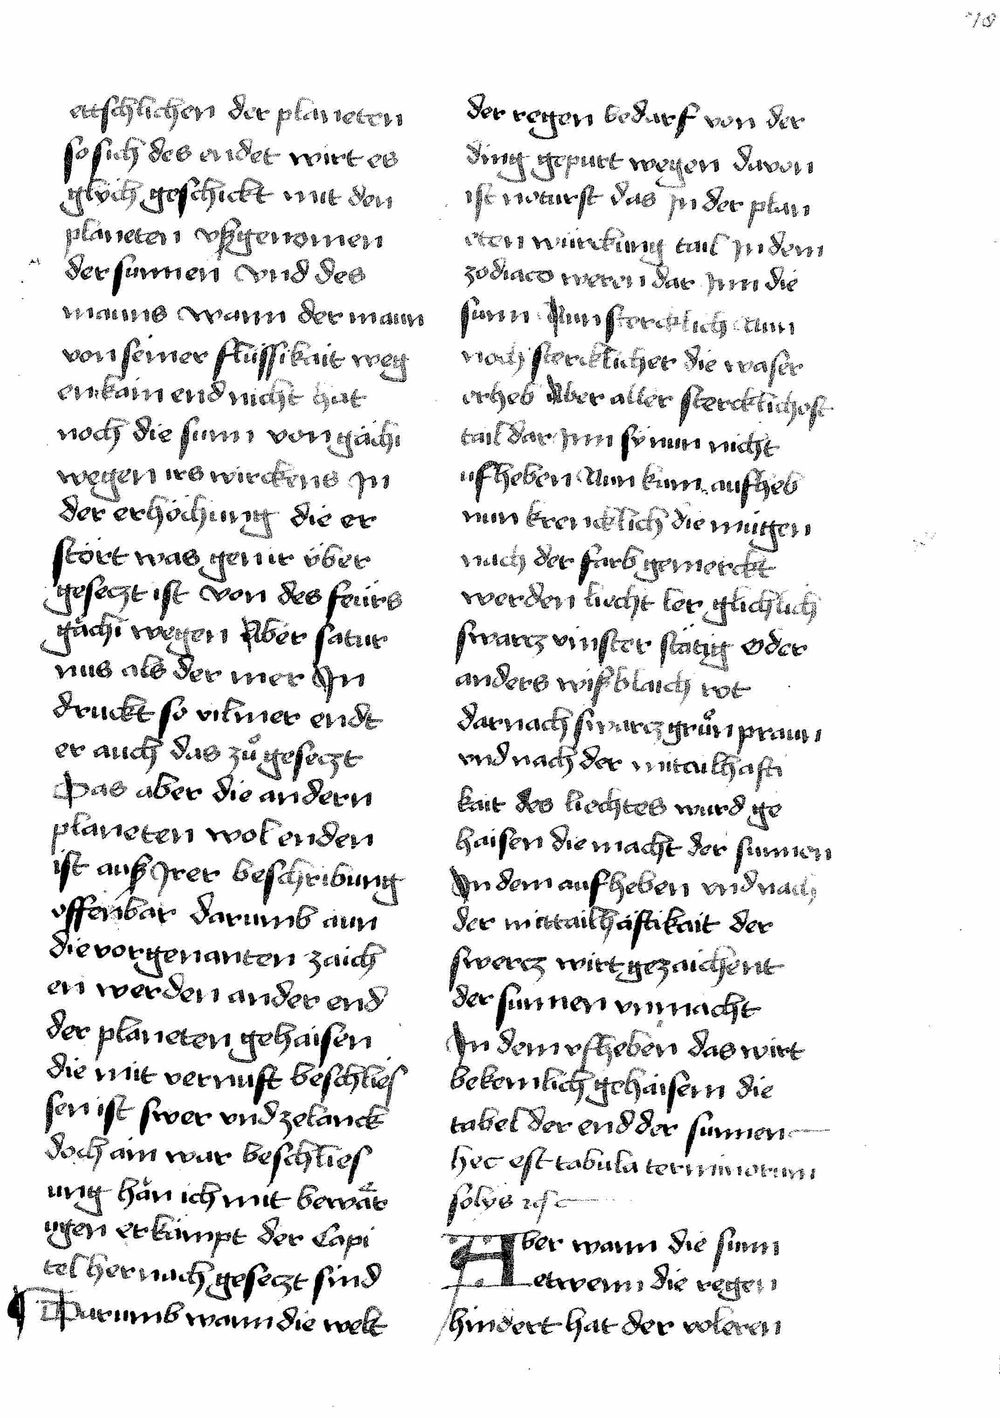 78
ettschlichen der planeten
so sich des endet wirt es
glych geschickt mit den
planeten vßgenomen
der sunnen Vnd des
mauns wann der maun
von seiner flüssikait weg
en kain end nicht hat
noch die sunn von gächi
wegen irs wirckens In
der erhöchung die er
stört was genir über
gesetzt ist Von des feürs
gächi wegen Aber satur
nus als der mer In
druckt so vilmer endt
er auch das zů gesetzt
Das aber die andern
planeten wol enden
ist auß Irer beschribung
offenbar darumb aun
die vorgenanten zaich
en werden ander end
der planeten gehaisen
die mit vernuft beschlies
sen ist swer vnd zelanck
doch ain war beschlies
ung hän ich mit bewär
ugen erkämpt der Capi
tel hernach gesetzt sind
Darumb wann die welt
der regen bedarf von der
ding gepurt wegen davon
ist noturft das In der plan
eten würckung tail In dem
zodiaco weren dar Inn die
sunn Nun stercklich Nun
noch stercklicher die waser
erheb Aber aller stercklichost
tail dar Inn sy nun nicht
ufheben Nun kum aufheb
nun krencklich die mügen
nach der farb gemerckt
werden liecht ler glichlich
swartz vinster stätig Oder
anders wißblaich rot
darnach swartz grün praun
vnd nach der mitailhafti
kait des liechtes wurd ge
haisen die macht der sunnen
In dem aufheben vnd nach
der mittailhäftikait der
swertz wirt gezaichent
der sunnen vnmacht
In dem vfheben das wirt
bekemlich gehaisern die
tabel der end der sunnen
hec est tabula terminorum
solys
Aber wann die sunn
etwenn die regen
hindert hat der voleren